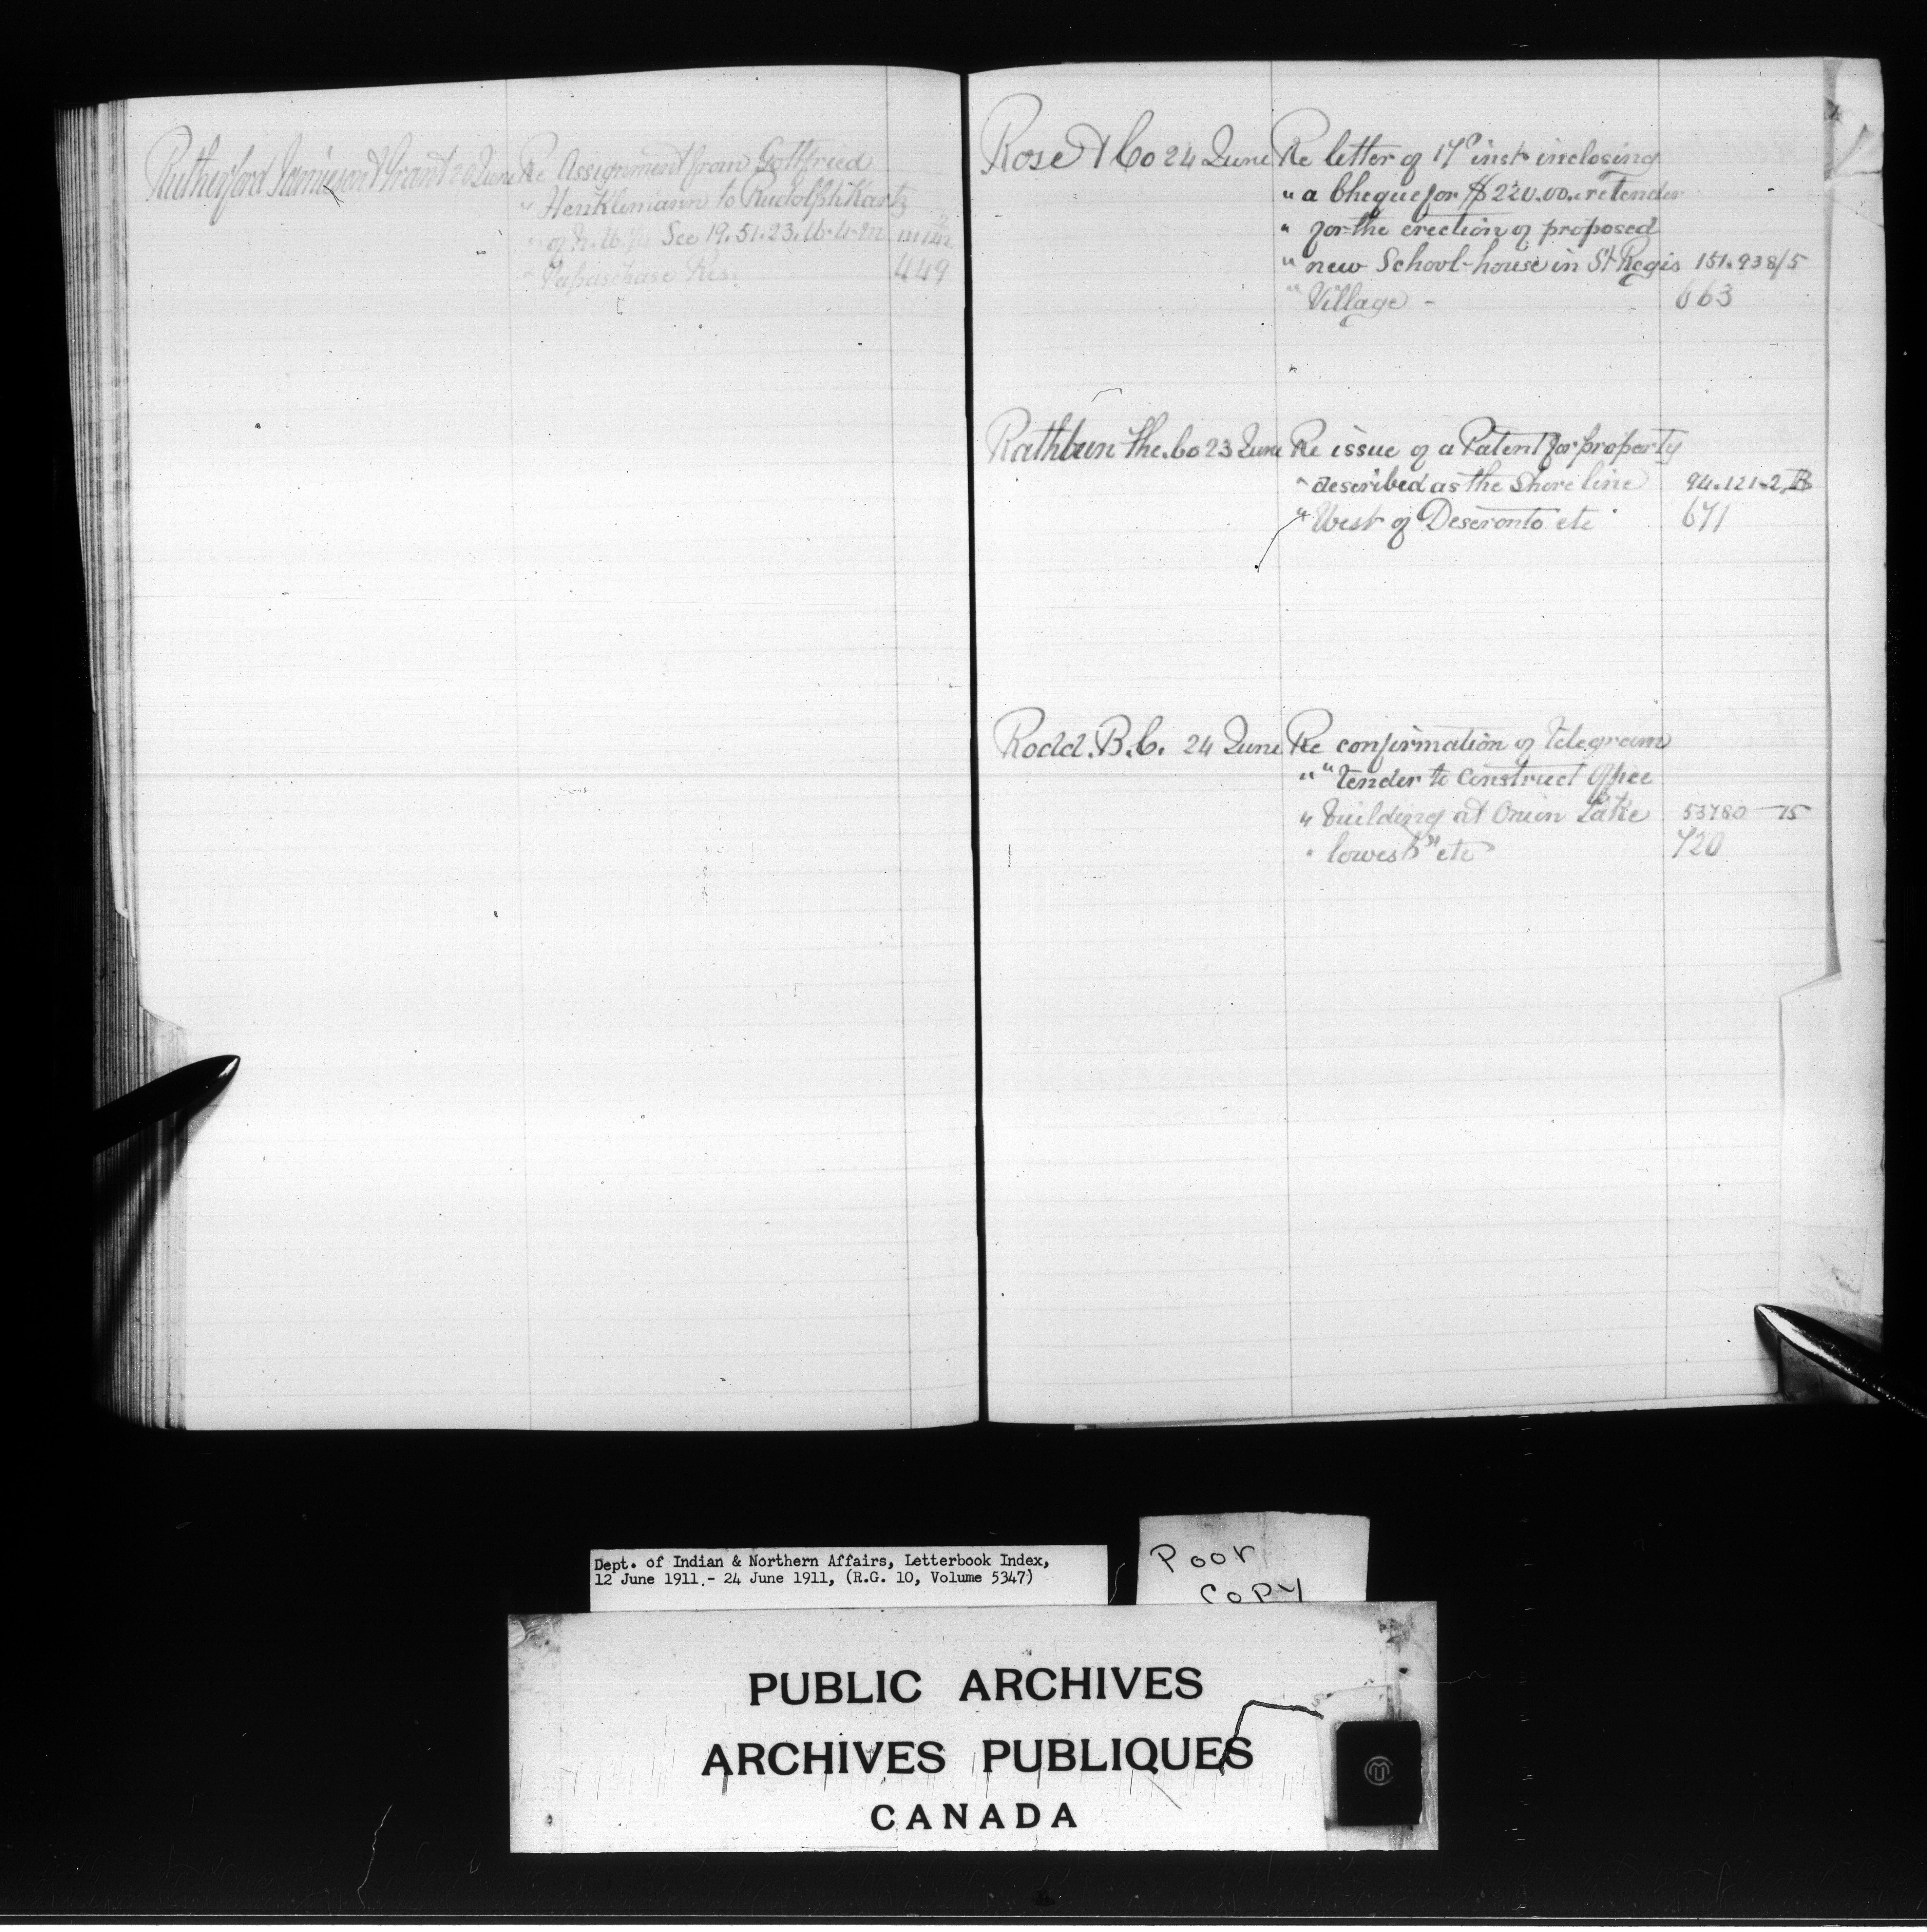 Rutherford Jamieson & Grant 20 June Re Assignment from Gottfried
" Henklemann to Rudolph Kartz
" of N.W. ¼ Sec 19. 51. 23. W. 4. M
" Papaschase Res. 449
Rose & Co 24 June Re letter of 17th inst inclosing
" a Cheque for $220.00. re tender
" for the erection of proposed
" new School-house in St Regis 151.938/5
" Village - 663
Rathbun The. Co 23 June Re issue of a Patent for property
" described as the Shore line 94.121-2
" West of Deseronto etc 671
Rodd. B.C. 24 June Re confirmation of telegram
" " tender to construct Office
" building at Onion Lake 53780—15
" lowest" etc 720
Dept. of Indian & Northern Affairs, Letterbook Index,
12 June 1911.- 24 June 1911, (R.G. 10, Volume 5347)
Poor
Copy
PUBLIC ARCHIVES
ARCHIVES PUBLIQUES
CANADA